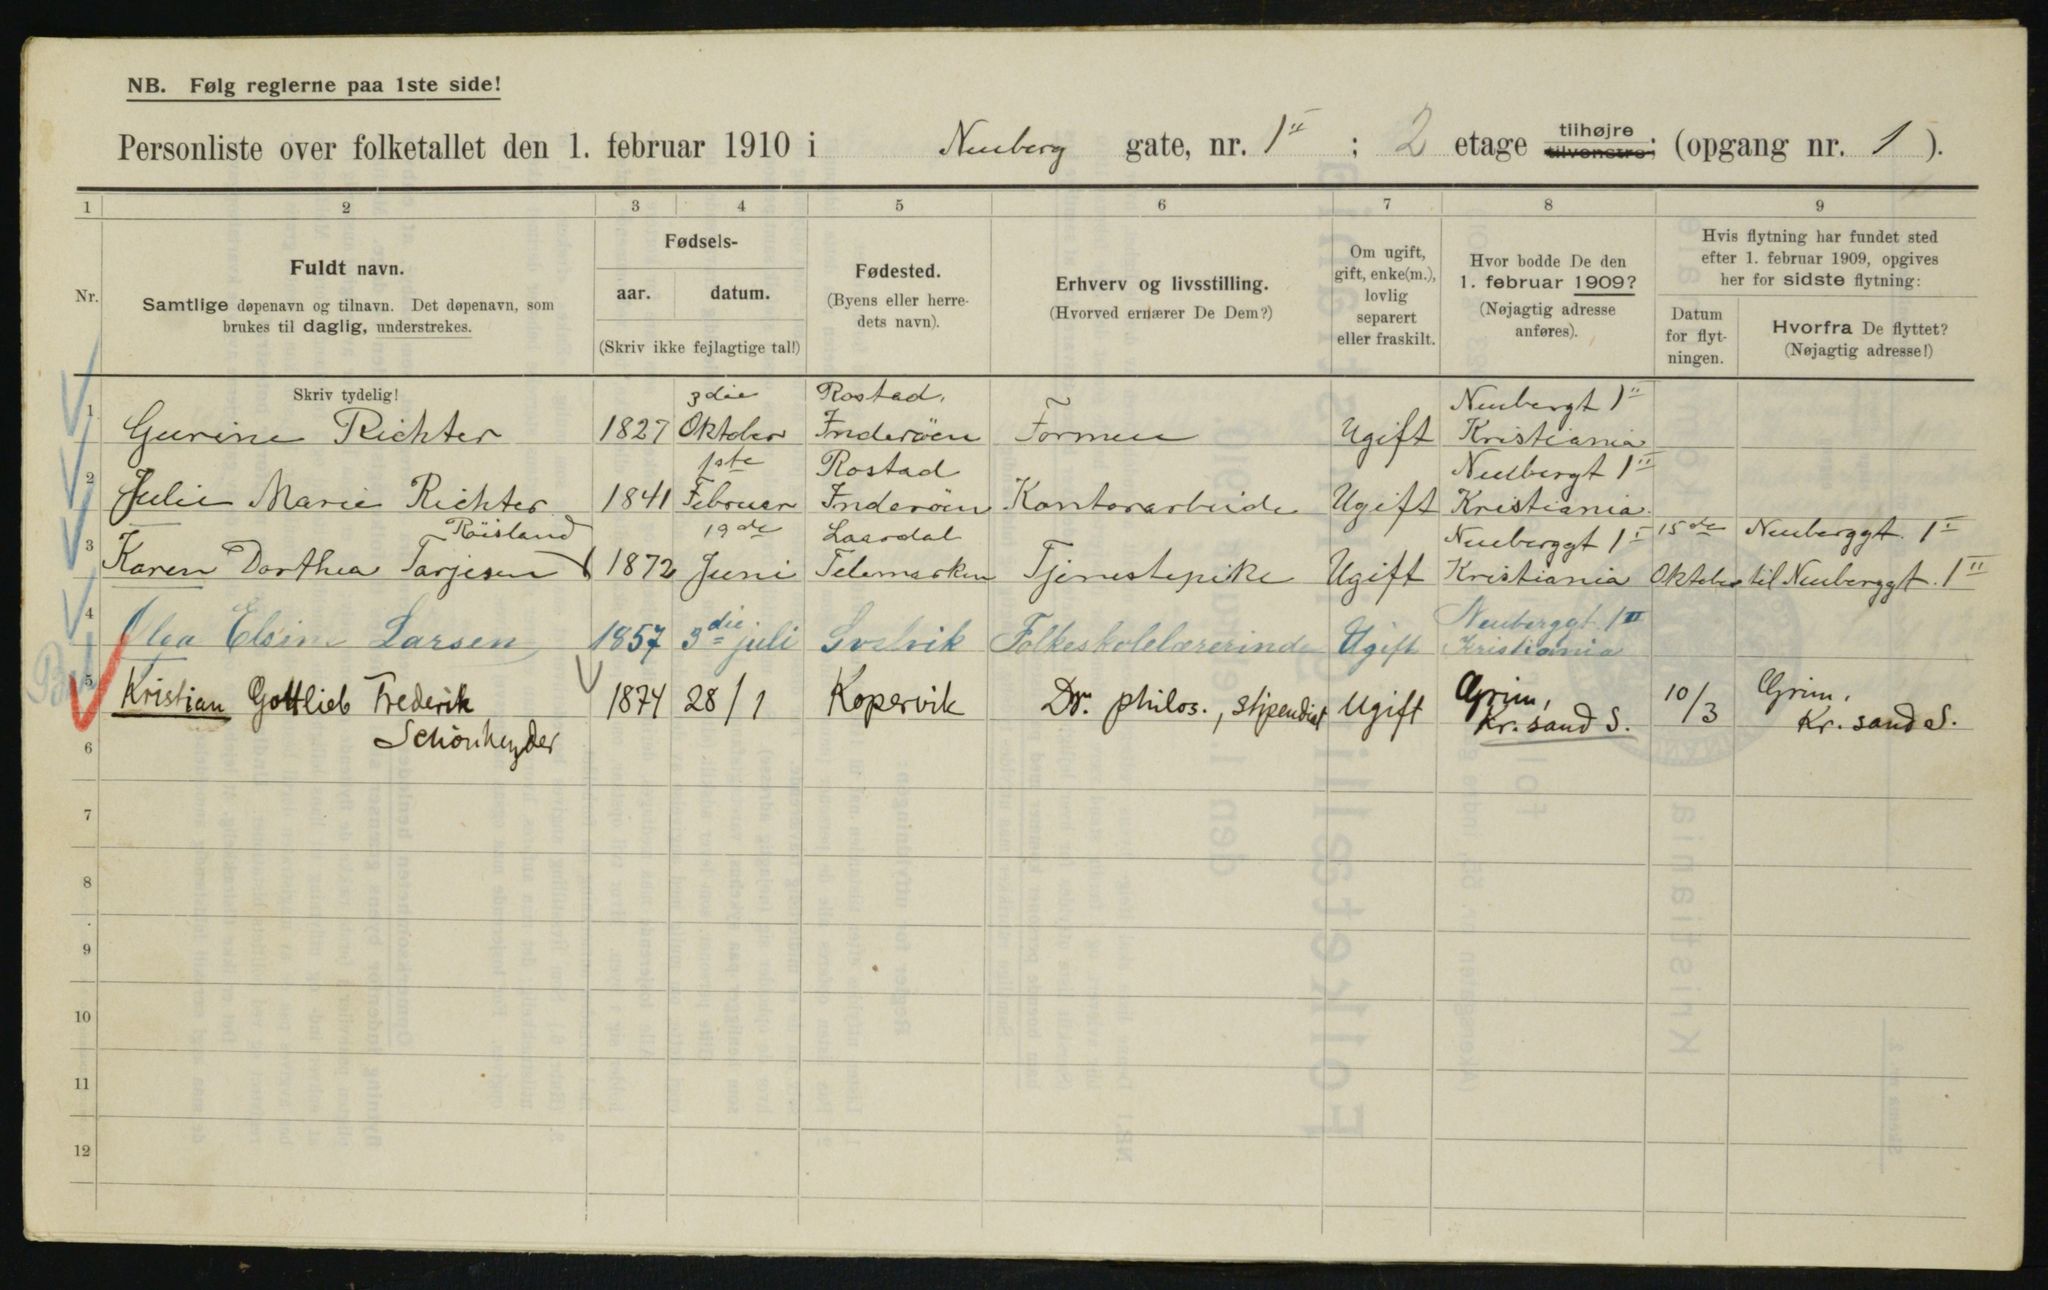 NB. Følg reglerne paa 1ste side!
Personliste over folketallet den 1. februar 1910 i Neuberg gate, nr. 1 II ; 2 etage tilhøjre tilvenstre; (opgang nr. 1 ).
1 2 3 4 5 6 7 8 9
Nr.
Fuldt navn.
Samtlige døpenavn og tilnavn. Det døpenavn, som
brukes til daglig, understrekes.
Fødsels-
aar.
datum.
(Skriv ikke fejlagtige tal!)
Fødested.
(Byens eller herre-
dets navn).
Erhverv og livsstilling.
(Hvorved ernærer De Dem?)
Om ugift,
gift, enke(m.),
lovlig
separert
eller fraskilt.
Hvor bodde De den
1. februar 1909?
(Nøjagtig adresse
anføres).
Hvis flytning har fundet sted
efter 1. februar 1909, opgives
her for sidste flytning:
Datum
for flyt-
ningen.
Hvorfra De flyttet?
(Nøjagtig adresse!)
Skriv tydelig!
3die Rostad, Neubergt 1 II
1 Gurine Richter 1827 Oktober Inderøen Formue Ugift Kristiania
1ste Rostad Neubergt 1 II
2 Julie Marie Richter 1841 Februar Inderøen Kontorarbeide Ugift Kristiania
Røisland 19de Laardal Neuberggt 1 I 15de Neuberggt. 1 I
3 Karen Dorthea Tarjesen 1872 Juni Telemarken Tjenestepike Ugift Kristiania Oktober til Neuberggt. 1 II
Neuberggt. 1 II
4 Olga Elsine Larsen 1857 3die juli Svelvik Folkeskolelærerinde Ugift Kristiania
5 Kristian Gottlieb Frederik 1874 28/1 Kopervik Dr. philos., stipendiat Ugift Grim, 10/3 Grim,
Schønheyder Kr.sand S. Kr.sand S.
6
7
8
9
10
11
12